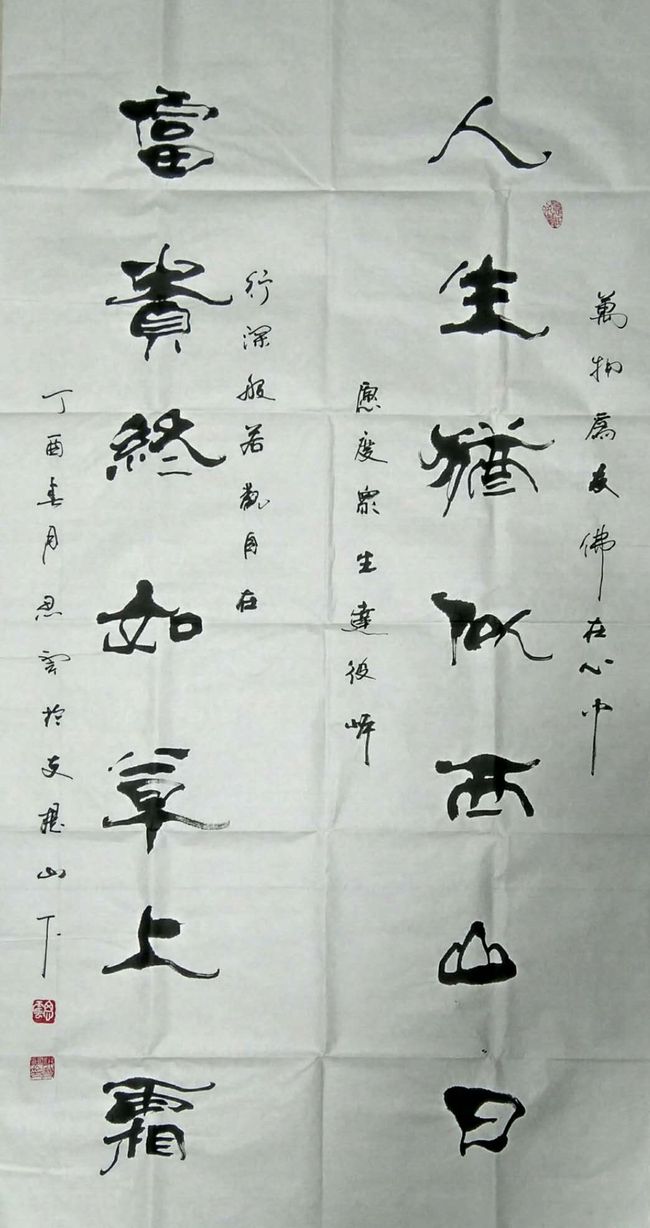 萬物爲友佛在心中
人生猶似西山日
愿度眾生達彼岸
行深般若觀自在
富貴終如草上霜
丁酉春月思雲於支提山下